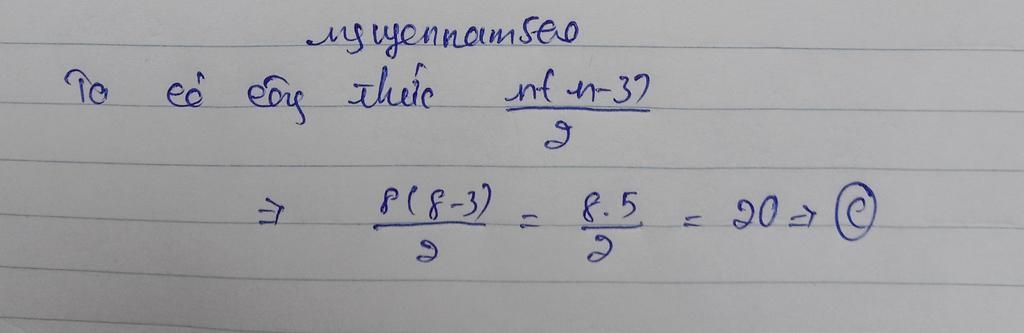 nguyennamseo
Ta có công thức n(n-3)/2
⇒ 8(8-3)/2 = 8.5/2 = 20 ⇒ C